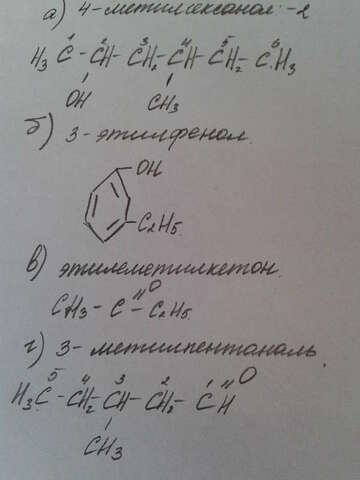 а) 4-метилгексанол-2
H₃C¹-CH²-CH₂³-CH⁴-CH₂⁵-CH₃⁶
OH CH₃
б) 3-этилфенол.
OH
C₂H₅
в) этилеметилкетон.
O
CH₃-C-C₂H₅
г) 3-метилпентаналь.
H₃C⁵-CH₂⁴-CH³-CH₂²-C¹H O
CH₃